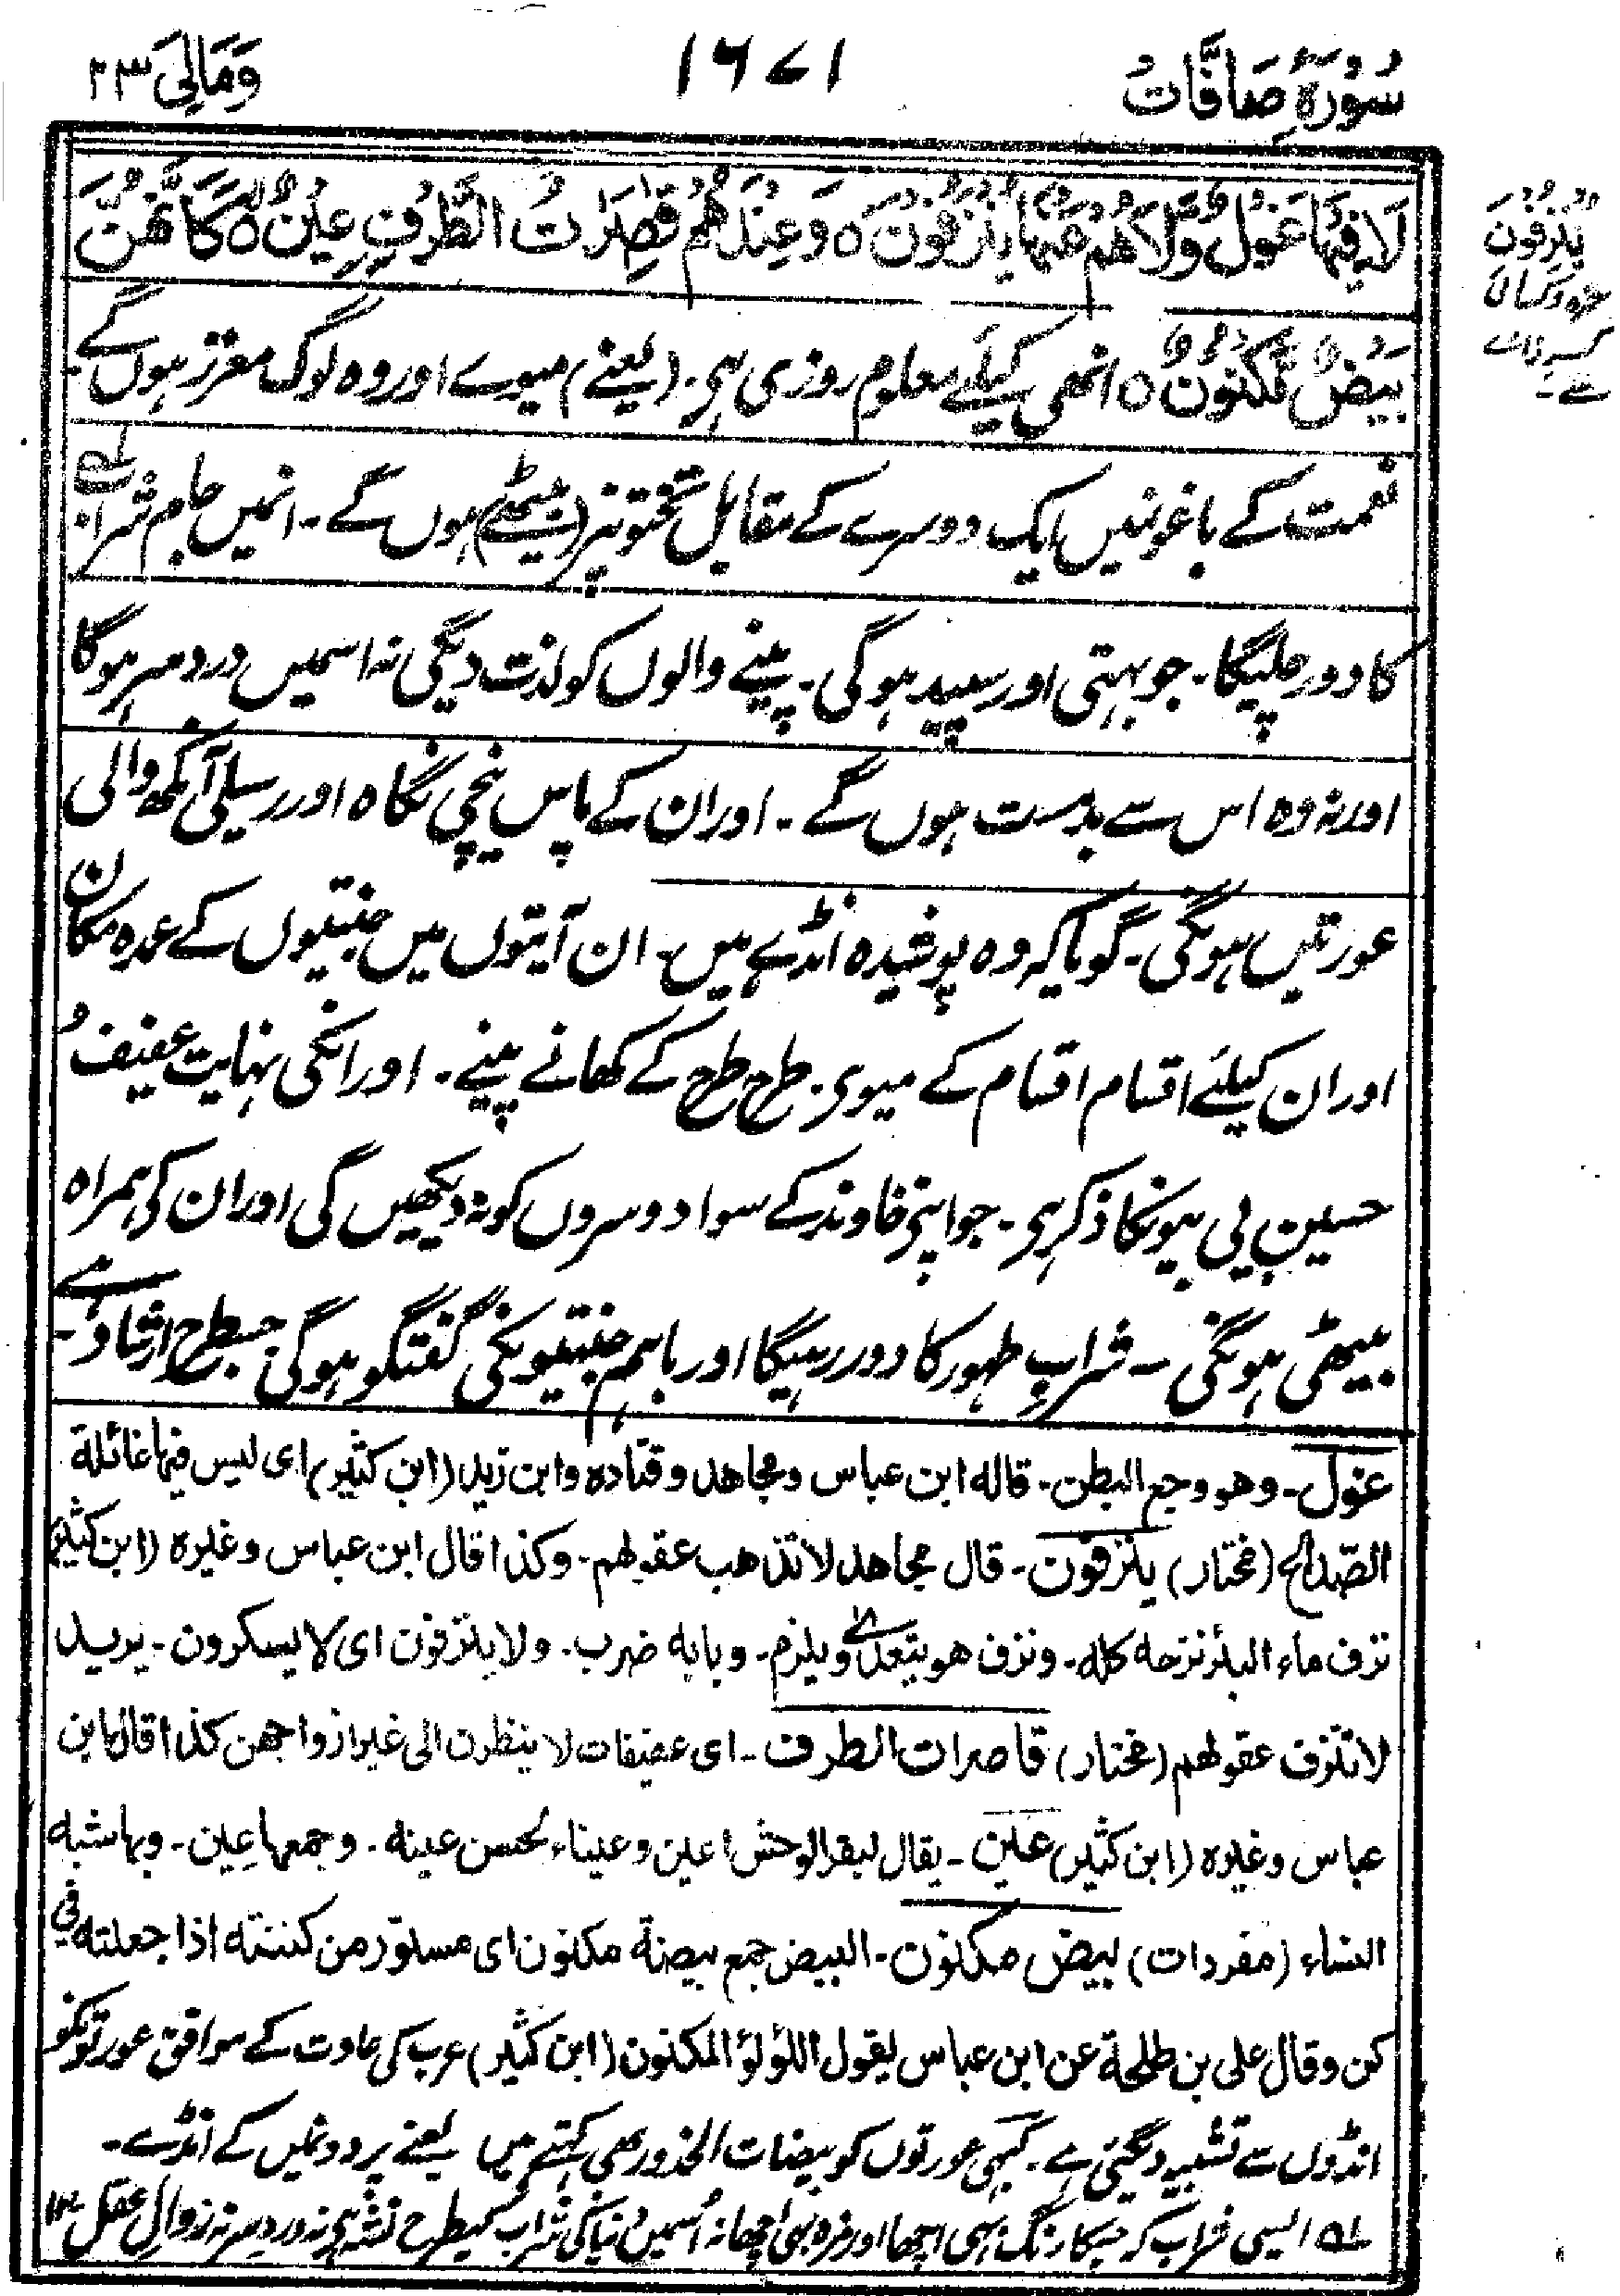 سُوْرَۃُ صَافَّاتُ
۱۶۷۱
وَمَالِیَ ۲۳
لَا فِيْهَا غَوْلٌ وَّلَا هُمْ عَنْهَا يُنْزَفُوْنَ ٥ وَعِنْدَهُمْ قٰصِرٰتُ الطَّرْفِ عِيْنٌ ٥ كَاَنَّهُنَّ
بَيْضٌ مَّكْنُوْنٌ ٥ انھی کیلئے معلوم روزی ہی۔ (یعنے) میوے اور وہ لوگ معزز ہوں گے۔
نعمت کے باغونمیں ایک دوسرے کے مقابل تختونپر (بیٹھے) ہوں گے۔ انمیں جام شراب
کا دور چلیگا۔ جو بہتی اور سپید ہوگی۔ پینے والوں کو لذت دیگی نہ اسمیں درد سر ہوگا
اور نہ وہ اس سے بدمست ہوں گے۔ اور ان کے پاس نیچی نگاہ اور رسیلی آنکھ والی
عورتیں ہونگی۔ گویا کہ وہ پوشیدہ انڈے ہیں۔ ان آیتوں میں جنتیوں کے عمدہ مکان
اور ان کیلئے اقسام اقسام کے میوی۔ طرح طرح کے کھانے پینے۔ اور انکی نہایت عفیف ُ
حسین بی بیونکا ذکر ہی۔ جو اپنی خاوند کے سوا دوسروں کو نہ دیکھیں گی اور ان کی ہمراہ
بیٹھی ہونگی۔ شرابِ طہور کا دور رہیگا اور باہم جنتیونکی گفتگو ہوگی جسطرح ارشاد ہے۔
غول۔ وھو وجع البطن۔ قالہ ابن عباس ومجاھد وقتادہ وابن زید (ابن کثیر) ای لیس فیھا غائلة
الصّداع (مختار) ینزفون۔ قال مجاھد لا تذھب عقولھم۔ وکذا قال ابن عباس وغیرہ (ابن کثیر)
نزف ماء البئر نزحه کله۔ ونزف ھو یتعدی ویلزم۔ وبابه ضرب۔ ولا ینزفون ای لا یسکرون۔ یرید
لا تنزف عقولھم (مختار) قاصرات الطرف۔ ای عفیفات لا ینظرن الی غیر ازواجھن کذا قال ابن
عباس وغیرہ (ابن کثیر) عین۔ یقال لبقر الوحش اعین وعیناء لحسن عینه۔ وجمعھا عِین۔ وبھا شبه
النساء (مفردات) بیض مکنون۔ البیض جمع بیضة مکنون ای مستور من کننته اذا جعلته فی
کن وقال علی بن طلحة عن ابن عباس یقول اللؤلؤ المکنون (ابن کثیر) عرب کی عادت کے موافق عورتونکو
انڈوں سے تشبیہ دیگئی ہے۔ کبھی عورتوں کو بیضات الخدور بھی کہتے ہیں یعنے پردونمیں کے انڈے۔
ایسی شراب کہ جسکا رنگ بھی اچھا اور مزہ بھی اچھا نہ اُسمیں دنیا کی شراب کیطرح نشہ ہی نہ درد سر نہ زوالِ عقل ۱۲
یُنْزِفُوْنَ